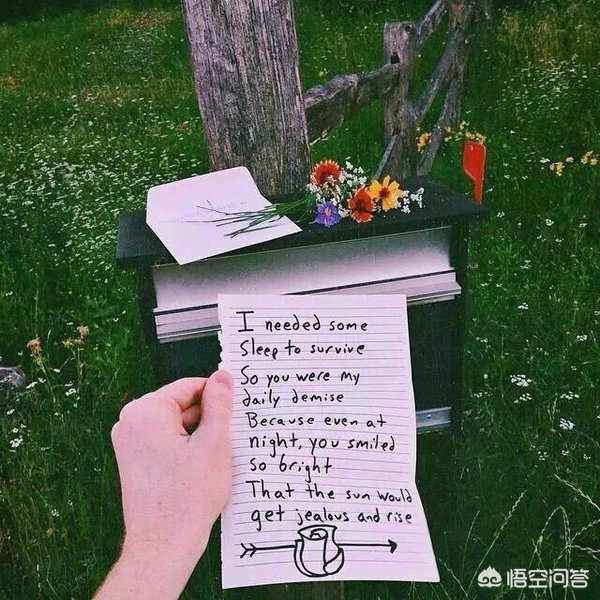 I needed some
Sleep to survive
So you were my
daily demise
Because even at
night, you smiled
so bright
That the sun would
get jealous and rise
悟空问答